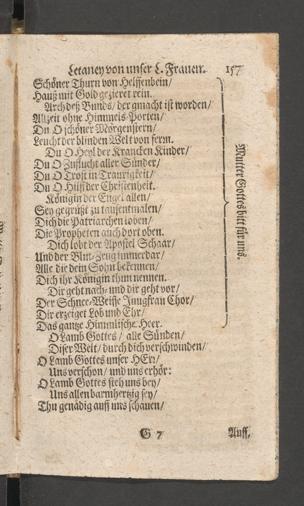 Letaney von unser L. Frauen. 157
Schöner Thurn von Helffenbein/
Hauß mit Gold gezieret rein.
Arch deß Bunds/ der gmacht ist worden/
Allzeit ohne Himmels-Porten/
Du O schöner Morgenstern/
Leucht der blinden Welt von ferrn.
Du O Heyl der Krancken Kinder/
Du O Zuflucht aller Sünder/
Du O Trost in Traurigkeit/
Du O Hilff der Christenheit.
Königin der Engel allen/
Sey gegrüßt zu tausentmalen/
Dich die Patriarchen loben/
Die Propheten auch dort oben.
Dich lobt der Apostel Schaar/
Und der Blut-Zeug immerdar/
Alle die dein Sohn bekennen/
Dich ihr Königin thun nennen.
Dir geht nach/ und dir geht vor/
Der Schnee-Weisse Jungfrau Chor/
Dir erzeiget Lob und Ehr/
Das gantze Himmlische Heer.
Mutter Gottes bitt für uns.
O Lamb Gottes/ alle Sünden/
Diser Welt/ durch dich verschwunden/
O Lamb Gottes unser HErr/
Uns verschon/ und uns erhör:
O Lamb Gottes steh uns bey/
Uns allen barmhertzig sey/
Thu genädig auff uns schauen/
G 7 Auff,